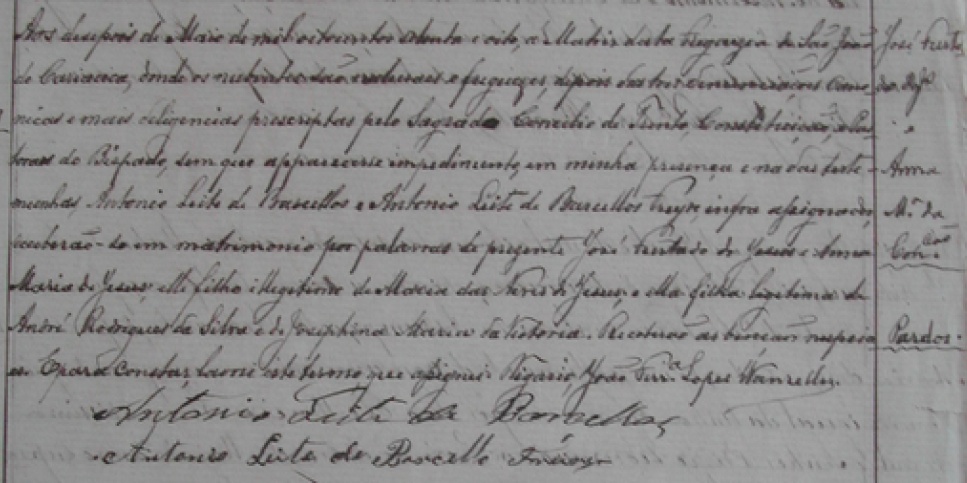 Aos desepois de Maio de mil oitocentos oitenta e oito, a Matris desta Freguezia de São João
de Cariacica, donde os nubentes são naturaes e freguezes, depois das tres denunciações cano
nicas e mais diligencias prescriptas pelo Sagrado Concilio de Trento, Constituição, e Pas
toraes do Bispado, sem que apparecesse impedimento, em minha presença e na das teste-
munhas, Antonio Leite de Barcellos e Antonio Leite de Barcellos Freyre, infra assignados,
receberão-se em matrimonio por palavras de presente José Furtado de Jesus e Anna
Maria de Jesus, elle filho illegitimo de Maria das Neves de Jesus, e ella filha legitima de
André Rodrigues da Silva e de Josephina Maria da Victoria. Receberão as bençãos nupcia
es. E para constar, lavrei este termo que assignei. Vigario João Ferr.a Lopes Wanzeller.
Antonio Leite de Barcellos
Antonio Leite de Barcello
José Furta
do
e
Anna
M.a da
Con.cão
Pardos.